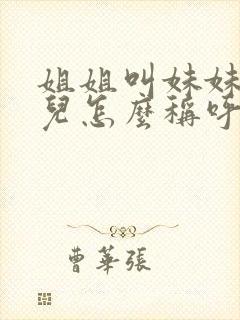 姐姐叫妹妹
兒怎麼稱呼
曹華張